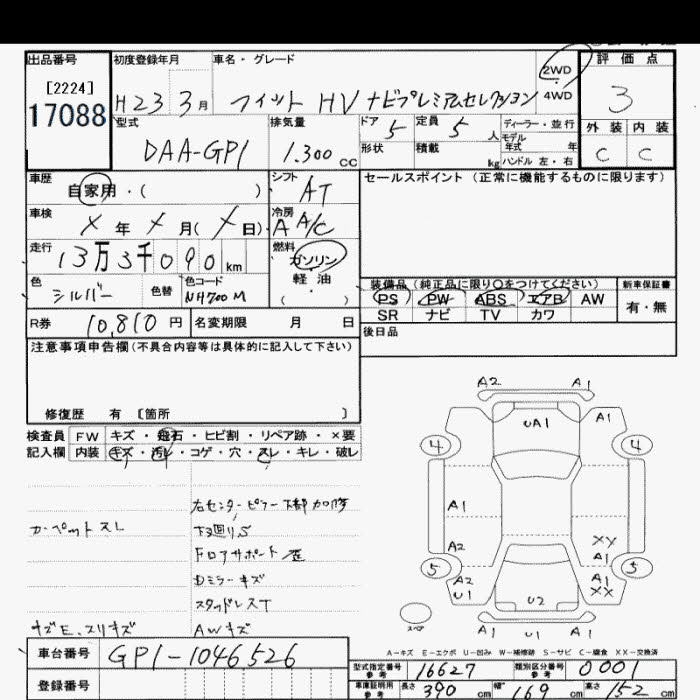 出品番号 初度登録年月 車名・グレード 2WD・4WD 評価点
[2224]
17088 H23 3月 フィット HV ナビプレミアムセレクション 3
型式 排気量 ドア 5 定員 5人 ディーラー・並行 外装 内装
DAA-GP1 1.300cc 形状 積載 kg モデル年式 年 C C
ハンドル 左・右
車歴 自家用・( ) シフト AT セールスポイント (正常に機能するものに限ります)
車検 X年 X月(X日) 冷房 A A/C
走行 13万3千090km 燃料 ガソリン・軽油 ( )
色 シルバー 色替 色コード NH700M
装備品(純正品に限り○をつけてください) 新車保証書
PS PW ABS エアB AW 有・無
SR ナビ TV カワ
R券 10,810円 名変期限 月 日 後日品
注意事項申告欄(不具合内容等は具体的に記入して下さい)
修復歴 有 〔箇所 〕
検査員 FW キズ・飛石・ヒビ割・リペア跡・×要
記入欄 内装 キズ・汚れ・コゲ・穴・スレ・キレ・破レ
右センターピラー下部加修
カーペットスレ 下廻りS
フロアサポート歪
Dミラーキズ
スタッドレスT
キズE、スリキズ AWキズ
A2 A1
UA1 A1
4 4
A1
A2 XY
A1
5 5
A2 A1
U1 XX
U2
スペア
A1 U1 A1
A-キズ E-エクボ U-凹み W-補修跡 S-サビ C-腐食 XX-交換済
車台番号 GP1-1046526
型式指定番号 参考 16627 類別区分番号 参考 0001
登録番号 車庫証明用 参考 長さ 390cm 幅 169cm 高さ 152cm